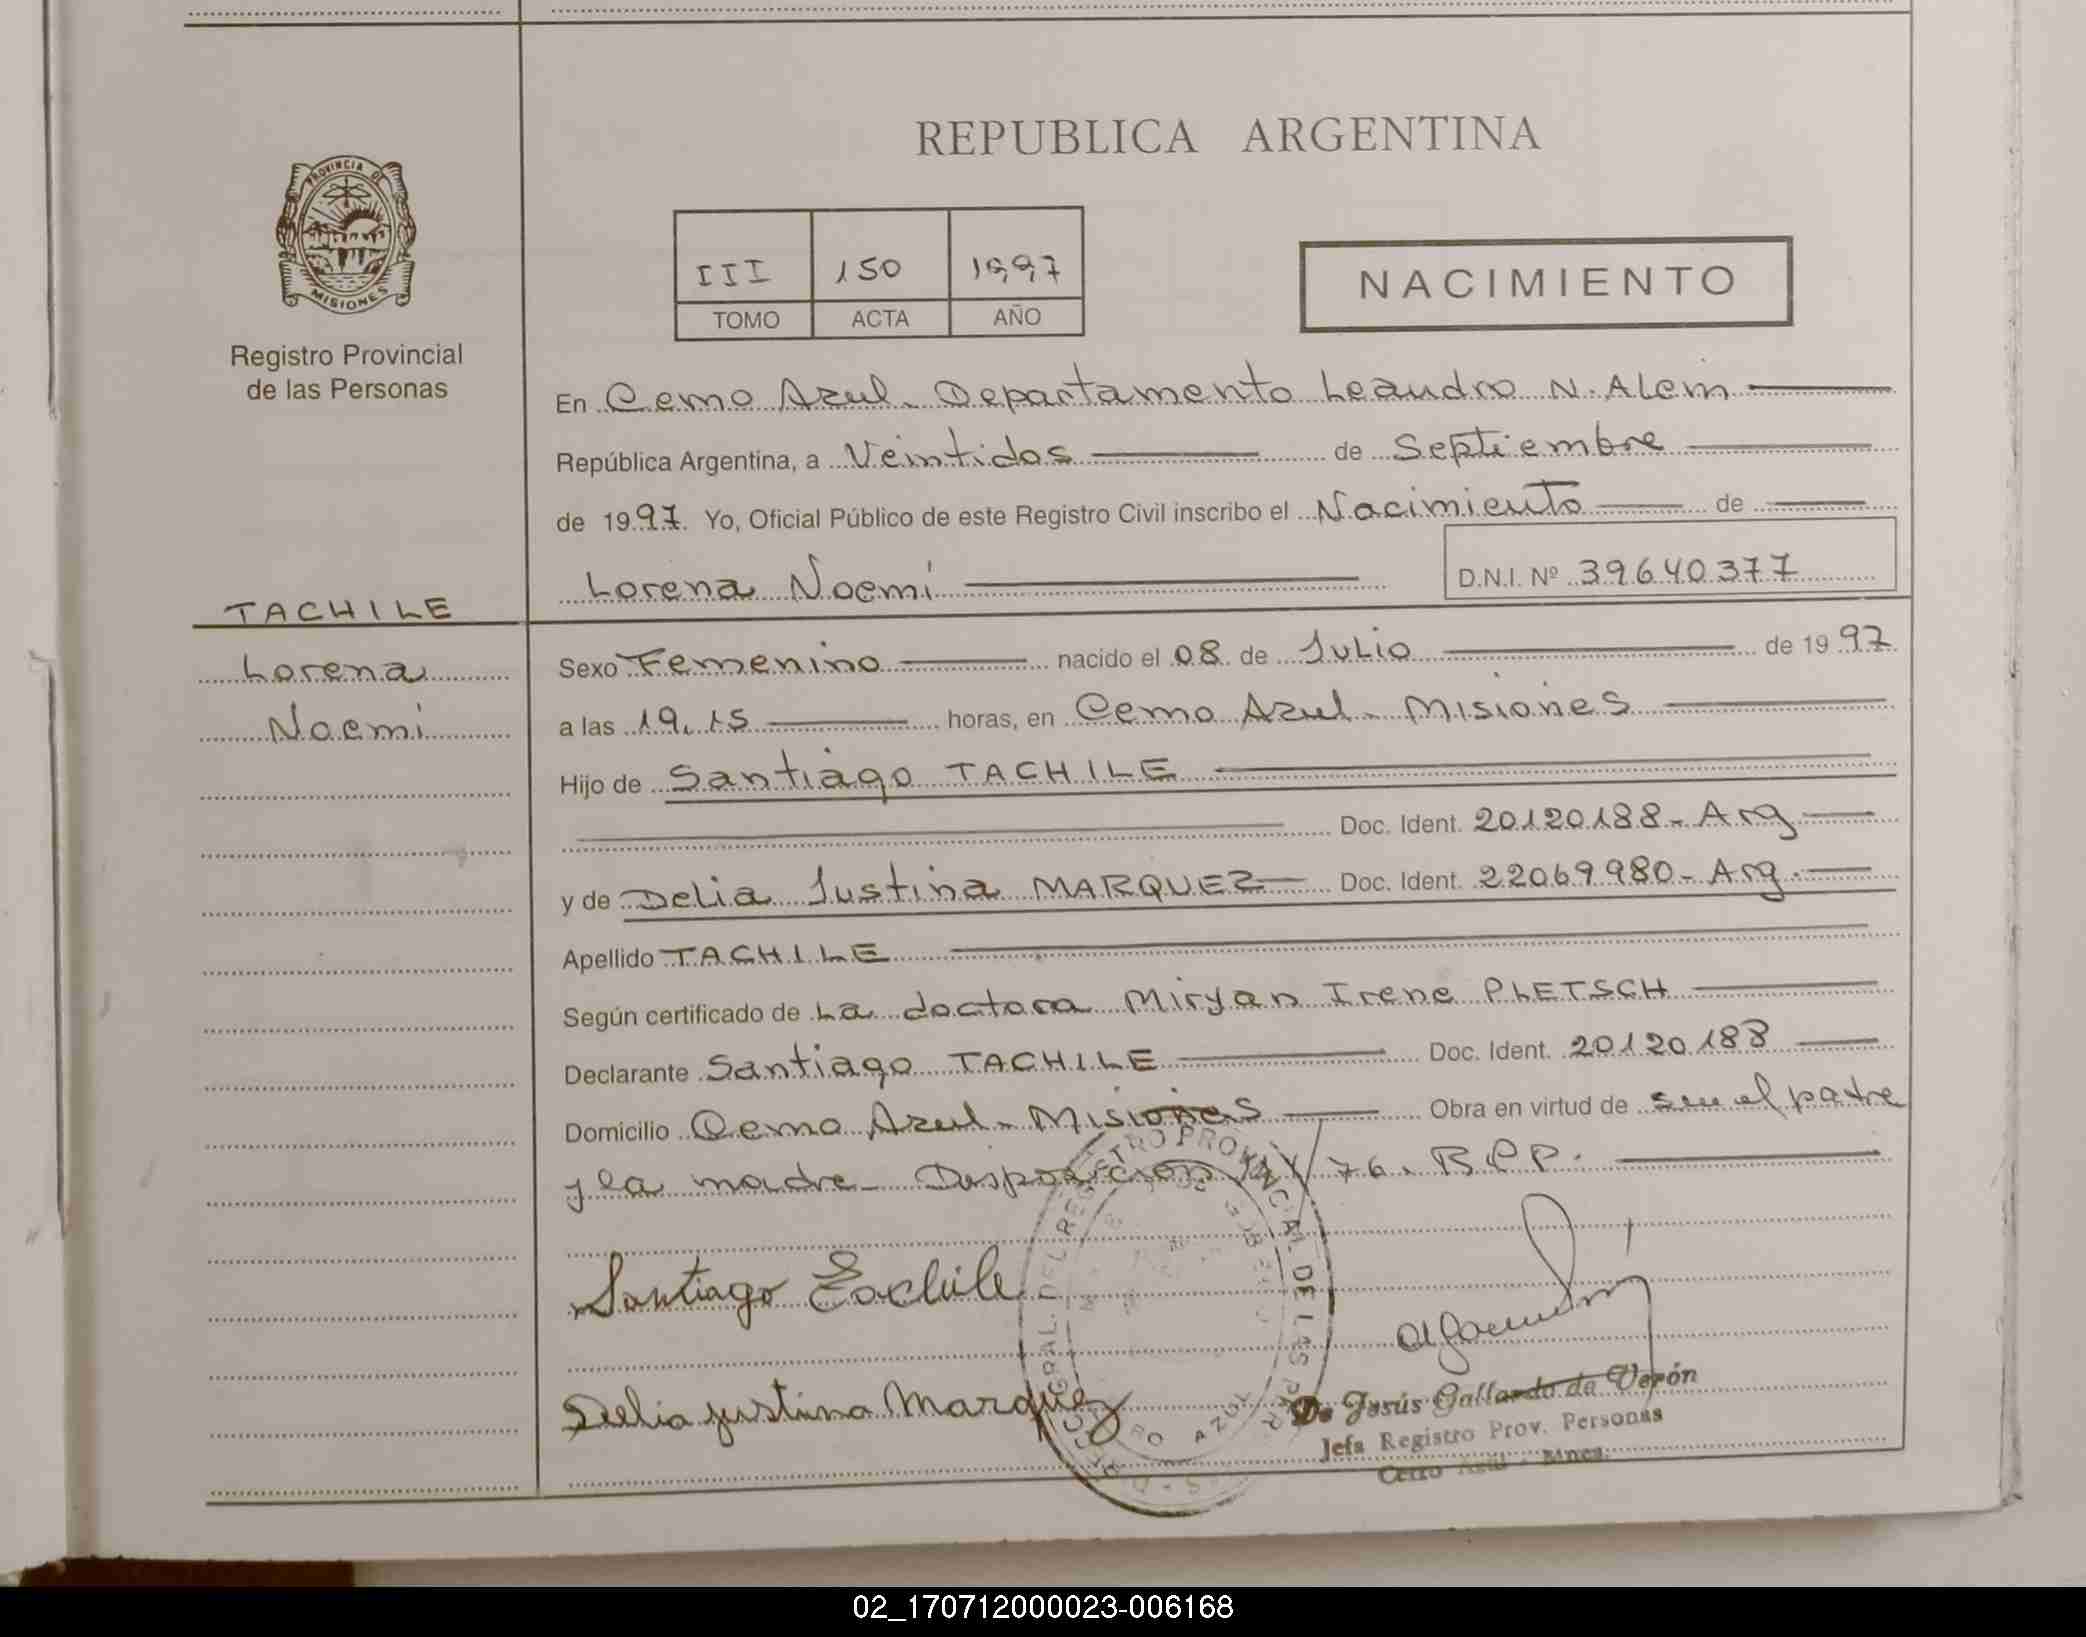 REPUBLICA ARGENTINA
PROVINCIA DE
MISIONES
Registro Provincial
de las Personas
III 150 1997
TOMO ACTA AÑO
NACIMIENTO
En Cerro Azul - Departamento Leandro N. Alem
República Argentina, a Veintidos de Septiembre
de 1997. Yo, Oficial Público de este Registro Civil inscribo el Nacimiento de
Lorena Noemi D.N.I. Nº 39640377
TACHILE
Lorena
Noemi
Sexo Femenino nacido el 08 de Julio de 1997
a las 19,15 horas, en Cerro Azul - Misiones
Hijo de Santiago TACHILE
Doc. Ident. 20120188 - Arg
y de Delia Justina MARQUEZ Doc. Ident. 22069980 - Arg.
Apellido TACHILE
Según certificado de La doctora Miryan Irene PLETSCH
Declarante Santiago TACHILE Doc. Ident. 20120188
Domicilio Cerro Azul - Misiones Obra en virtud de ser el padre
y la madre - Disposición 76. R.P.P.
Santiago Tachile
Delia justina Marquez
REGISTRO PROVINCIAL DE LAS PER
GRAL. DEL
AZUL
De Jesús Gallardo de Verón
Jefa Registro Prov. Personas
Cerro Azul - Mnes.
02_170712000023-006168